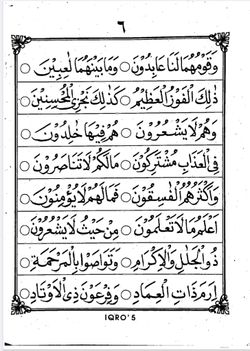 ٦
وَقَوْمُهُمَا لَنَا عَابِدُوْنَ ○ وَمَا بَيْنَهُمَا لَاعِبِيْنَ ○
ذٰلِكَ الْفَوْزُ الْعَظِيْمُ ○ كَذٰلِكَ نَجْزِى الْمُحْسِنِيْنَ ○
وَهُمْ لَا يَشْعُرُوْنَ ○ هُمْ فِيْهَا خٰلِدُوْنَ ○
فِى الْعَذَابِ مُشْتَرِكُوْنَ ○ مَالَكُمْ لَا تَنَاصَرُوْنَ ○
وَاَكْثَرُهُمُ الْفٰسِقُوْنَ ○ فَمَالَهُمْ لَا يُؤْمِنُوْنَ ○
اَعْلَمُ مَالَا تَعْلَمُوْنَ ○ مِنْ حَيْثُ لَا يَشْعُرُوْنَ ○
ذُو الْجَلٰلِ وَالْاِكْرَامِ ○ وَتَوَاصَوْا بِالْمَرْحَمَةِ ○
اِرَمَ ذَاتِ الْعِمَادِ ○ وَفِرْعَوْنَ ذِى الْاَوْتَادِ ○
IQRO' 5